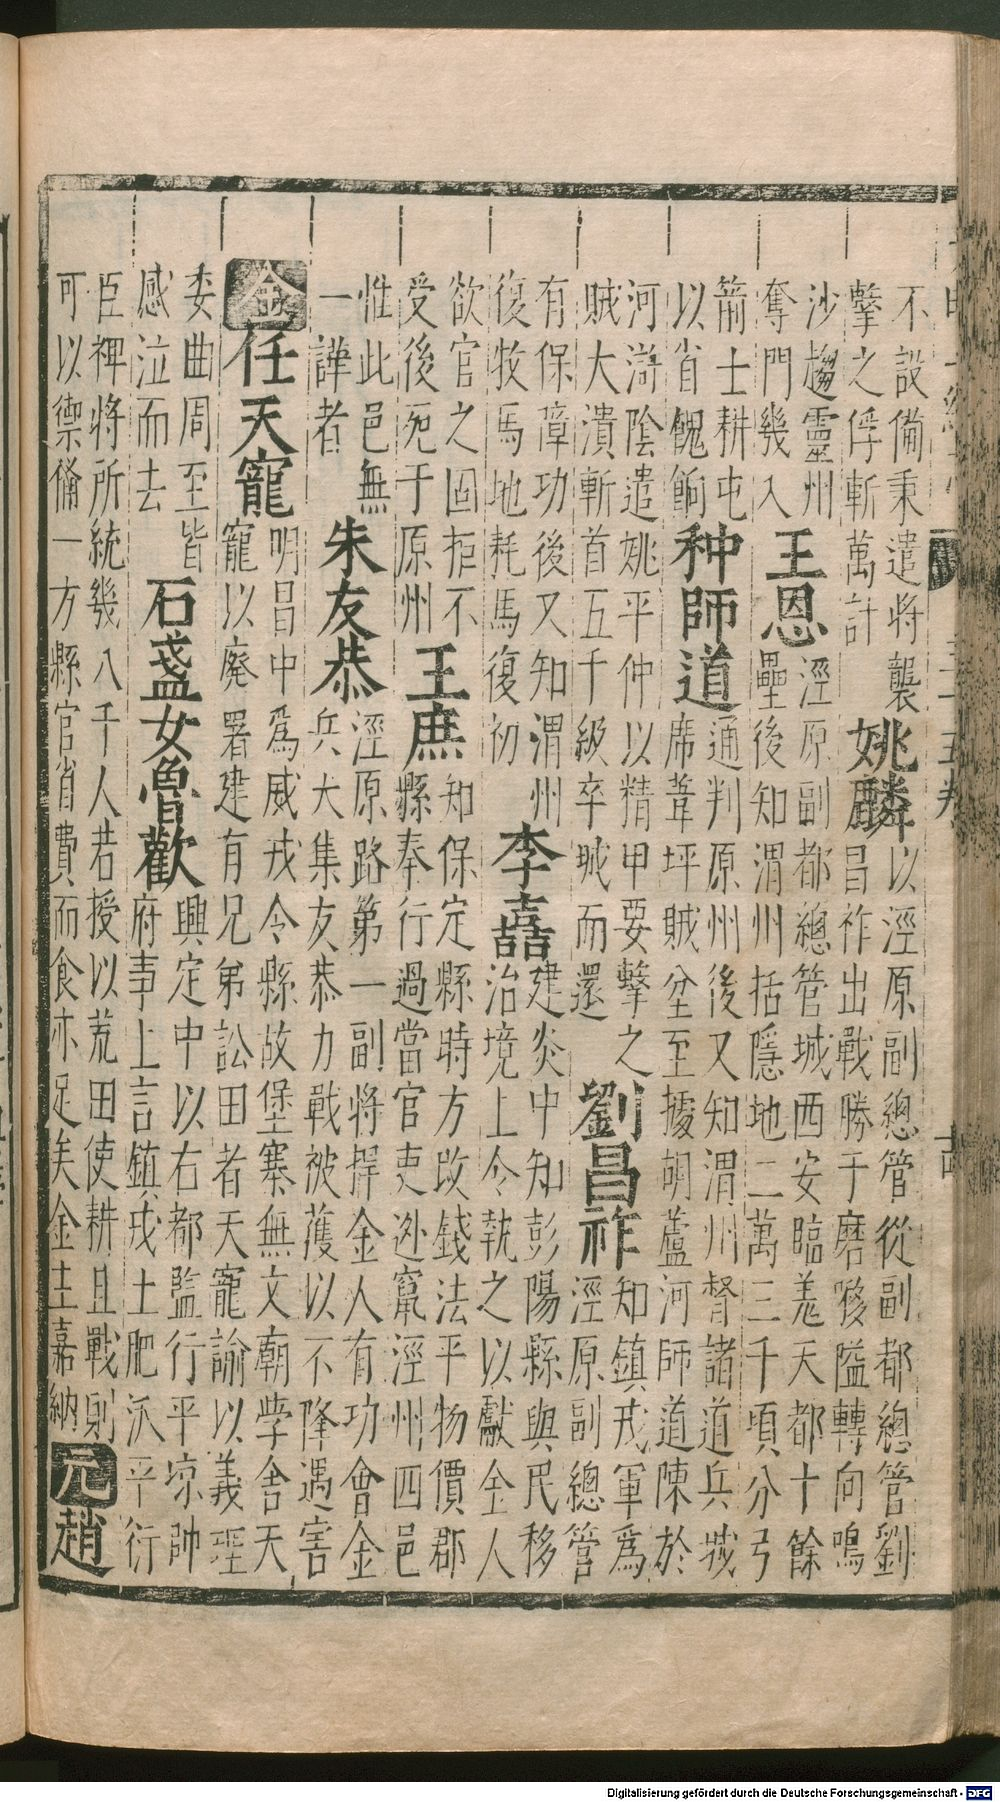 不設備秉遣將襲
擊之俘斬萬計
姚麟
以涇原副總管從副都總管劉
昌祚出戰勝于磨㗋隘轉向鳴
沙趨靈州
奪門幾入
王恩
涇原副都總管城西安臨羌天都十餘
壘後知渭州括隱地二萬三千頃分弓
箭士耕屯
以省餽餉
种師道
通判原州後又知渭州督諸道兵城
席葦坪賊坌至據胡蘆河師道陳於
河滸陰遣姚平仲以精甲要擊之
賊大潰斬首五千級卒城而還
劉昌祚
知鎮戎軍為
涇原副總管
有保障功後又知渭州
復牧馬地耗馬復初
李嚞
建炎中知彭陽縣與民移
治境上令執之以獻金人
欲官之固拒不
受後死于原州
王庶
知保定縣時方改錢法平物價郡
縣奉行過當官吏迯竄涇州四邑
惟此邑無
一譁者
朱友恭
涇原路第一副將捍金人有功會金
兵大集友恭力戰被獲以不降遇害
金任天寵
明昌中為威戎令縣故堡寨無文廟學舍天
寵以廢署建有兄弟訟田者天寵諭以義理
委曲周至皆
感泣而去
石盞女魯歡
興定中以右都監行平凉帥
府事上言鎮戎土肥沃平衍
臣裨將所統幾八千人若授以荒田使耕且戰則
可以禦備一方縣官省費而食亦足矣金主嘉納
元趙
Digitalisierung gefördert durch die Deutsche Forschungsgemeinschaft - DFG